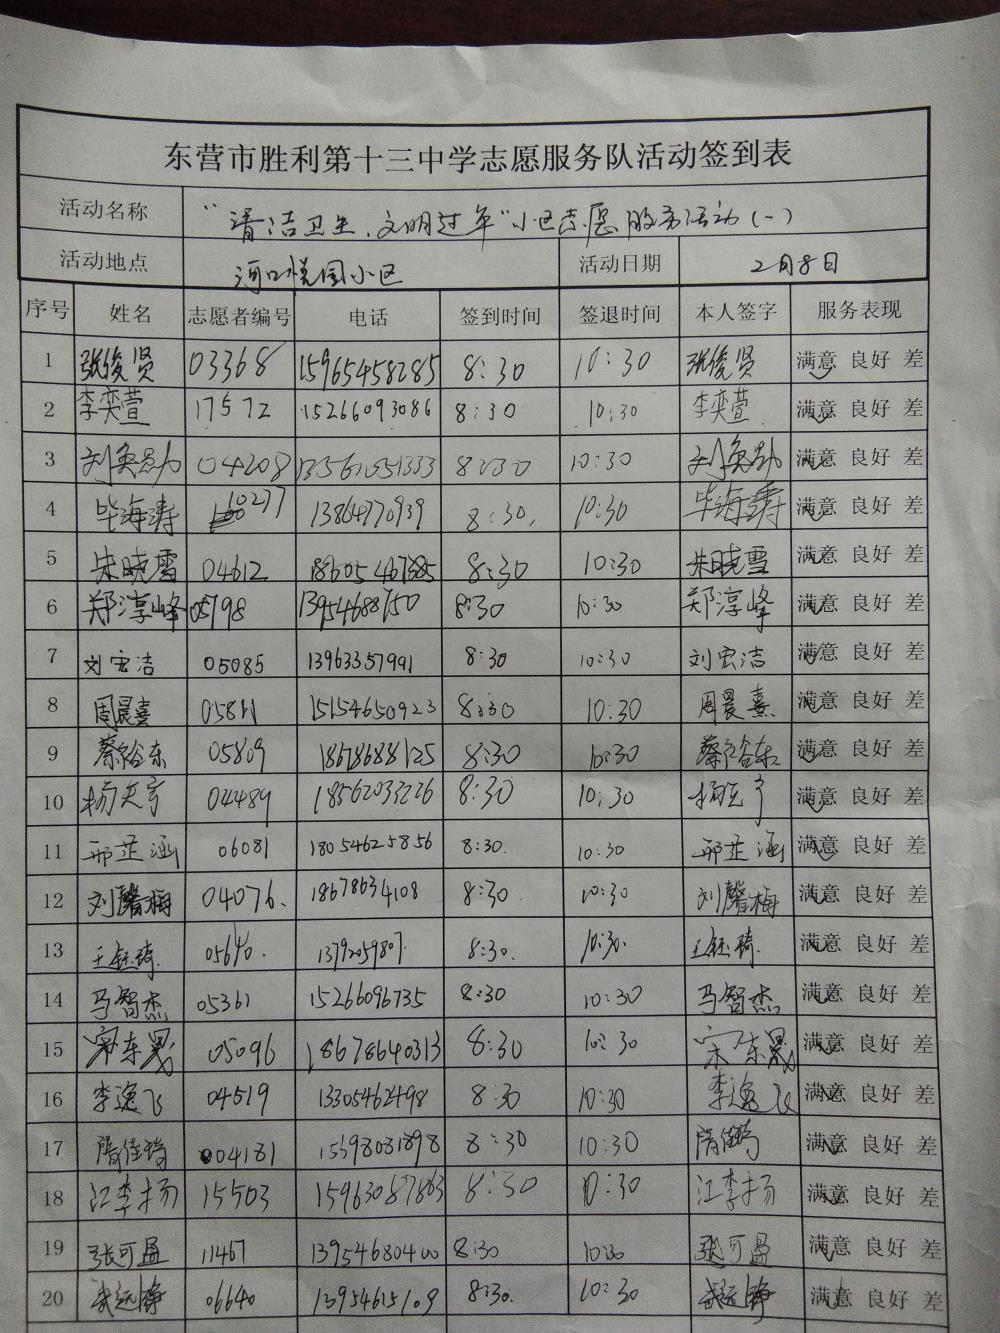 东营市胜利第十三中学志愿服务队活动签到表
活动名称 "清洁卫生、文明过年"小区志愿服务活动(一)
活动地点 河口悦园小区 活动日期 2月8日
序号 姓名 志愿者编号 电话 签到时间 签退时间 本人签字 服务表现
1 张俊贤 03368 15965458285 8:30 10:30 张俊贤 满意 良好 差
2 李奕萱 17572 15266093086 8:30 10:30 李奕萱 满意 良好 差
3 04208 8:30 10:30 满意 良好 差
4 毕海涛 10277 13864770939 8:30. 10:30 毕海涛 满意 良好 差
5 朱晓雪 04612 18605467885 8:30 10:30 朱晓雪 满意 良好 差
6 郑淳峰 05798 13954688750 8:30 10:30 郑淳峰 满意 良好 差
7 刘宏洁 05085 13963357991 8:30 10:30 刘宏洁 满意 良好 差
8 周晨熹 05811 15154650923 8:30 10:30 周晨熹 满意 良好 差
9 蔡裕东 05809 18678688125 8:30 10:30 蔡裕东 满意 良好 差
10 04489 18562033226 8:30 10:30 满意 良好 差
11 邢芷涵 06081 18054625856 8:30. 10:30 邢芷涵 满意 良好 差
12 刘馨梅 04076. 18678634108 8:30 10:30 刘馨梅 满意 良好 差
13 王钰琦. 05640. 1379205980?. 8:30. 10:30. 王钰琦. 满意 良好 差
14 马智杰 05361 15266096735 8:30 10:30 马智杰 满意 良好 差
15 宋东晟 05096 18678640313 8:30 10:30 宋东晟 满意 良好 差
16 李逸飞 04519 13305462498 8:30 10:30 李逸飞 满意 良好 差
17 隋佳鹤 004181 15398081898 8:30 10:30 隋佳鹤 满意 良好 差
18 江李扬 15503 15963087863 8:30 10:30 江李扬 满意 良好 差
19 张可盈 11467 13954680400 8:30 10:30 张可盈 满意 良好 差
20 武远静 06640 13954615109 8:30. 10:30 武远静 满意 良好 差